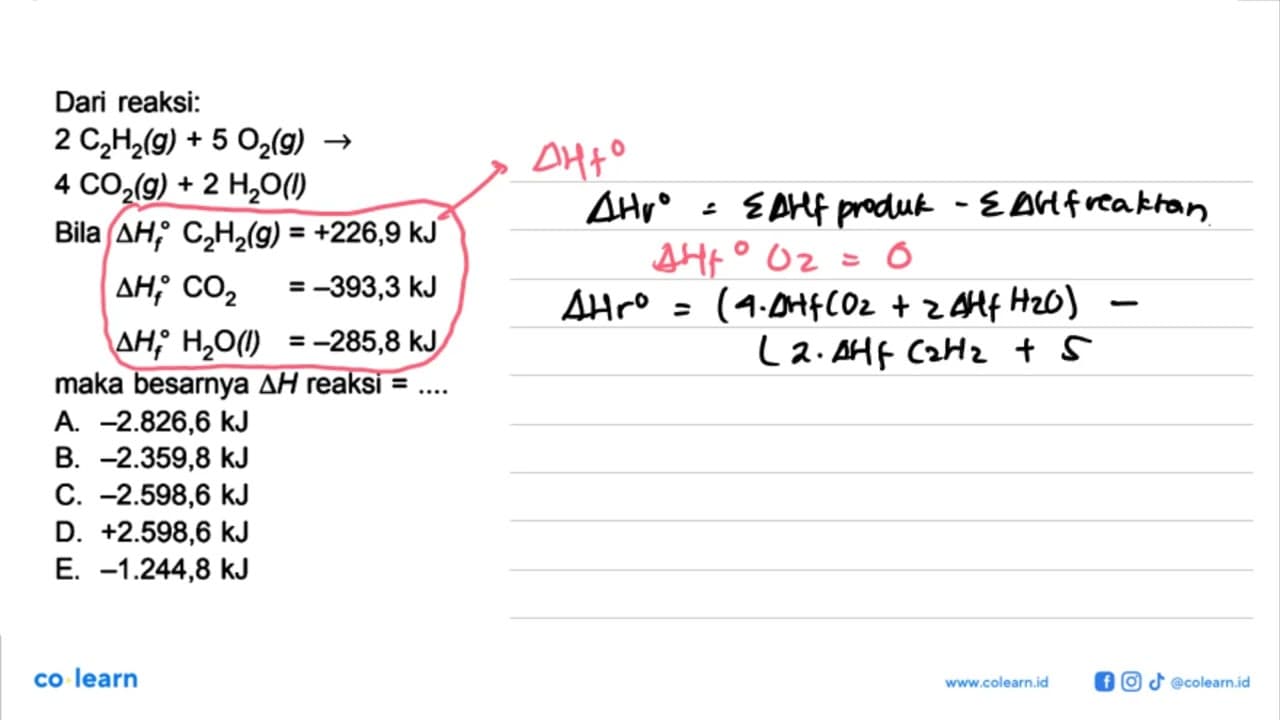 Dari reaksi:
2 C₂H₂(g) + 5 O₂(g) →
4 CO₂(g) + 2 H₂O(l)
Bila ΔHf° C₂H₂(g) = +226,9 kJ
ΔHf° CO₂ = –393,3 kJ
ΔHf° H₂O(l) = –285,8 kJ
maka besarnya ΔH reaksi = ....
A. –2.826,6 kJ
B. –2.359,8 kJ
C. –2.598,6 kJ
D. +2.598,6 kJ
E. –1.244,8 kJ
ΔHf°
ΔHr° = Σ ΔHf produk - Σ ΔHf reaktan
ΔHf° O2 = 0
ΔHr° = (4.ΔHf CO2 + 2 ΔHf H2O) -
(2.ΔHf C2H2 + 5
co learn
www.colearn.id
@colearn.id